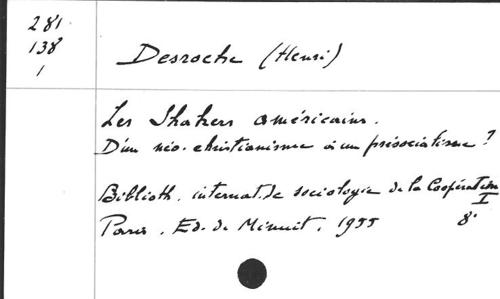 281
138
1
Desroche (Henri)
Les Shakers américains.
D'un néo-christianisme à un présocialisme ?
Biblioth. internat. de sociologie de la Coopération
I
Paris. Ed. de Minuit. 1955 8°